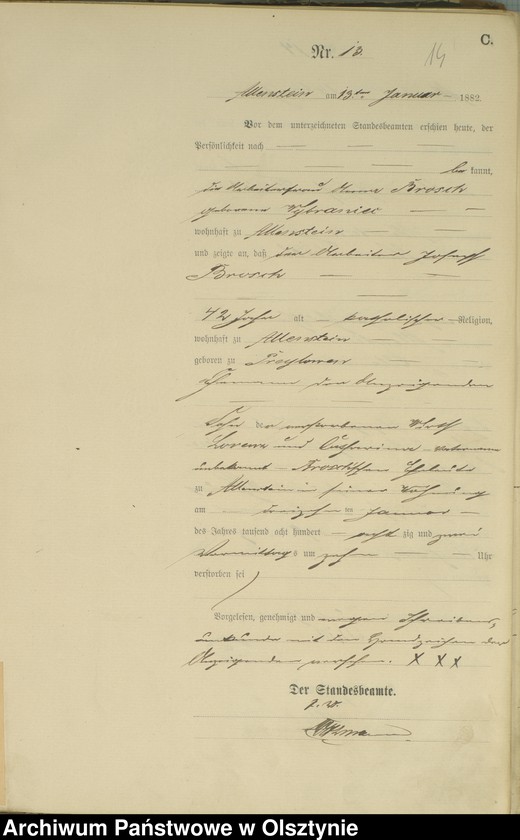 C.
Nr. 18.
14
Allenstein am 13ten Januar 1882.
Vor dem unterzeichneten Standesbeamten erschien heute, der
Persönlichkeit nach
bekannt,
die Arbeiterfrau Anna Brosch
geborene Wybraniec
wohnhaft zu Allenstein
und zeigte an, daß der Arbeiter Joseph
Brosch
42 Jahre alt katholischer Religion,
wohnhaft zu Allenstein
geboren zu
Ehemann der Anzeigenden
Sohn der verstorbenen
Lorenz und Catharina
unbekannt Eheleute
zu Allenstein in seiner Wohnung
am dreizehnten Januar
des Jahres tausend acht hundert achtzig und zwei
Vormittags um zehn Uhr
verstorben sei
Vorgelesen, genehmigt und wegen Schreibens
mit den Handzeichen der
Anzeigenden versehen. X X X
Der Standesbeamte.
Archiwum Państwowe w Olsztynie